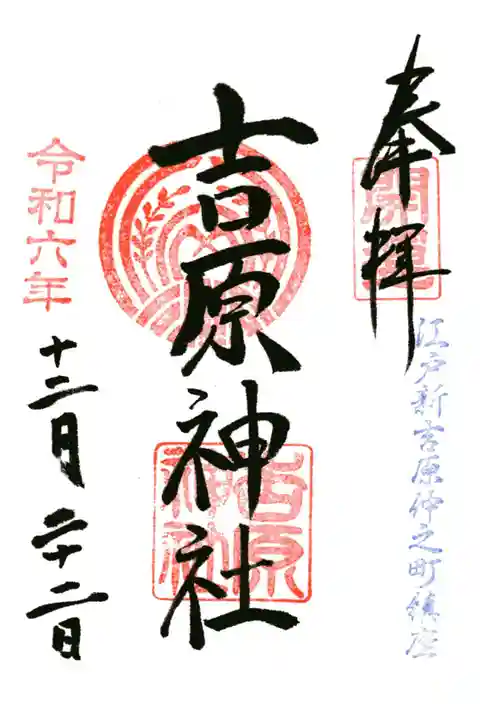 奉拝
開運
江戸新吉原仲之町鎮座
吉原神社
吉原神社
令和六年
十二月二十二日